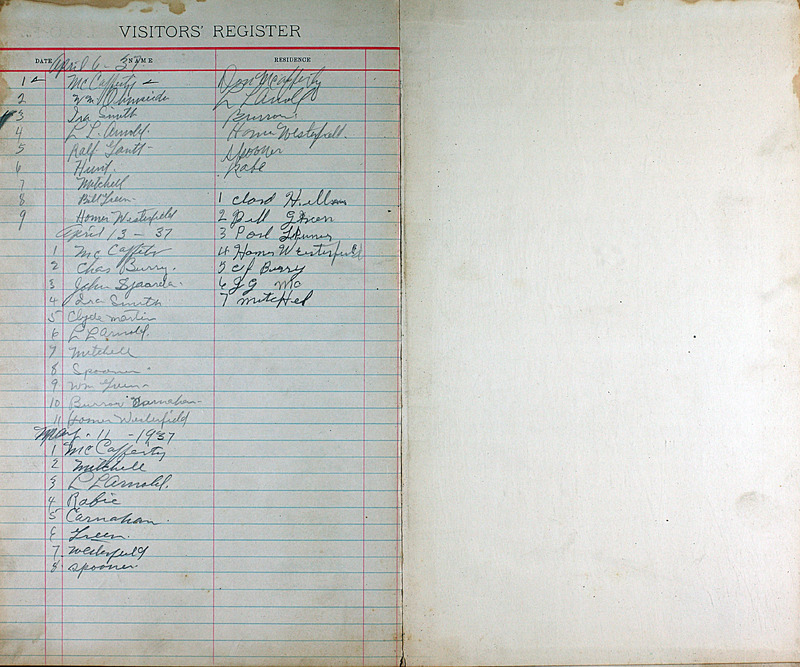 VISITORS' REGISTER
DATE NAME RESIDENCE
April 6-37
1 McCafferty Don McCafferty
2 Wm L L Arnold
3 Ira Smith Burrow
4 L L. Arnold. Homer Westerfield.
5 Ralf Spooner
6 Hunt Rabe
7 Mitchell
8 Bill Green 1
9 Homer Westerfield 2 Bill Green
April 13-37 3
1 McCafferty 4 Homer Westerfield
2 Chas Burry. 5 C J Burry
3 John 6 J J Mc
4 Ira Smith 7 Mitchel
5 Clyde Martin
6 L L Arnold.
7 Mitchell
8 Spooner
9 Wm Green
10 Burrow Carnahan
11 Homer Westerfield
May. 11 -1937
1 McCafferty
2 Mitchell
3 L L Arnold.
4 Rabie
5 Carnahan.
6 Green.
7. Westerfield
8 Spooner